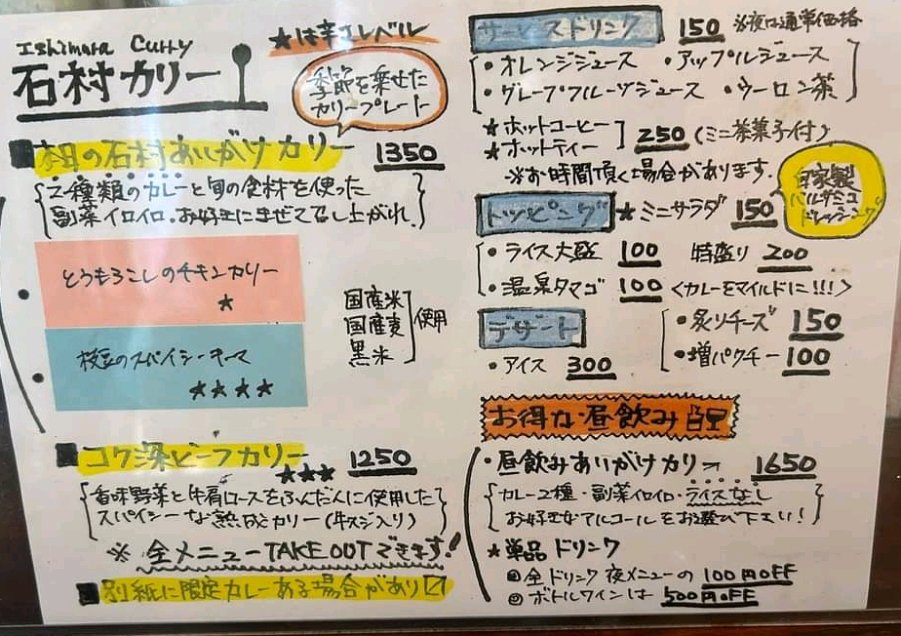 Ishimura Curry
石村カリー
★は辛さレベル
季節を乗せた
カリープレート
本日の石村あいがけカリー 1350
2種類のカレーと旬の食材を使った
副菜イロイロ。お好きにまぜて召し上がれ
とうもろこしのチキンカリー
★
枝豆のスパイシーキーマ
★★★★
国産米
国産麦
黒米
使用
コク深ビーフカリー
★★★ 1250
香味野菜と牛肩ロースをふんだんに使用した
スパイシーな熟成カリー(牛スジ入り)
※全メニューTAKE OUTできます!
別紙に限定カレーある場合があり〼
サービスドリンク 150 ※夜は通常価格
・オレンジジュース ・アップルジュース
・グレープフルーツジュース ・ウーロン茶
★ホットコーヒー
★ホットティー
250(ミニ茶菓子付)
※お時間頂く場合があります。
トッピング ★ミニサラダ 150
自家製
バルサミコ
ドレッシング
・ライス大盛 100 特盛り 200
・温泉タマゴ 100 <カレーをマイルドに!!!>
デザート
・アイス 300
・炙りチーズ 150
・増パクチー 100
お得な昼飲み
・昼飲みあいがけカリー 1650
カレー2種・副菜イロイロ・ライスなし
お好きなアルコールをお選び下さい!
★単品ドリンク
全ドリンク夜メニューの100円OFF
ボトルワインは500円OFF